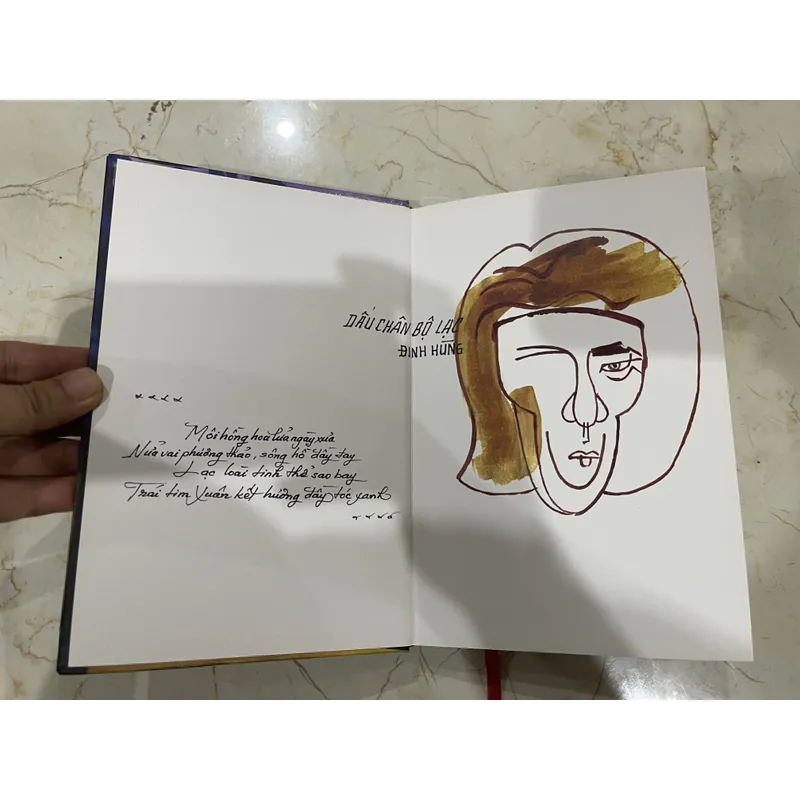 DẤU CHÂN BỘ LẠC
ĐINH HÙNG
Môi hồng hoa lửa ngày xưa
Nửa vai phương thảo, sông hồ dậy say
Lạc loài tinh thể sao bay
Trái tim Xuân kết hương đầy tóc xanh